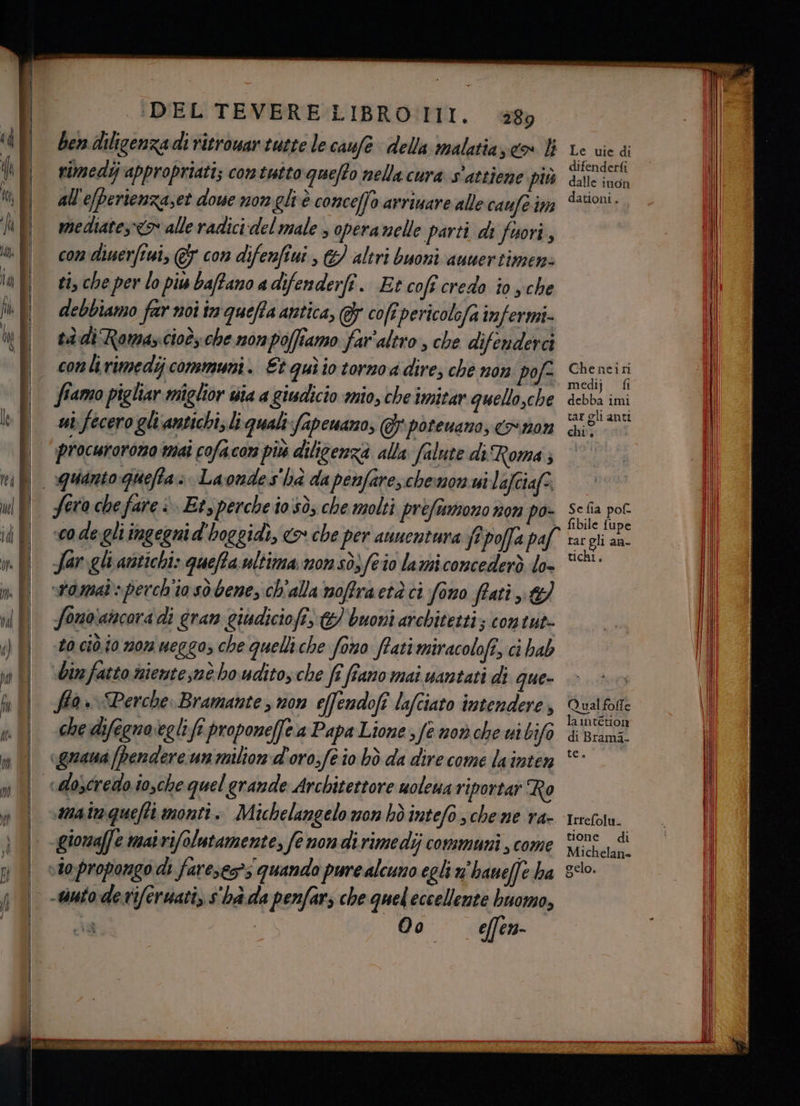 DEL TEVERE LIBRO III. 289
ben diligenza di ritrouar tutte le cauſe della malatia, & li
rimedij appropriati; con tutto queſto nella cura s'attiene più
all'eſperienza, et doue non gli è conceſſo arriuare alle cauſe im
mediate, & alle radici del male, opera nelle parti di fuori,
con diuerſiui, & con difenſiui, & altri buoni auuertimen-
ti, che per lo più baſtano a difenderſi. Et coſi credo io, che
debbiamo far noi in queſta antica, & coſi pericoloſa infermi-
tà di Roma, cioè, che non poſſiamo far'altro, che difenderci
con li rimedij communi. Et quì io torno a dire, che non poſ-
ſiamo pigliar miglior uia a giudicio mio, che imitar quello, che
ui fecero gli antichi, li quali ſapeuano, & poteuano, & non
procurorono mai coſa con più diligenza alla ſalute di Roma,
quanto queſta. Laonde s'hà da penſare, che non ui laſciaſ-
ſero che fare. Et, perche io sò, che molti preſumono non po-
co de gli ingegni d'hoggidì, & che per auuentura ſi poſſa paſ
ſar gli antichi: queſta ultima non sò, ſe io la mi concederò lo-
ro mai: perch'io sò bene, ch'alla noſtra età ci ſono ſtati, &
ſono ancora di gran giudicioſi, & buoni architetti; con tut-
to ciò io non ueggo, che quelli che ſono ſtati miracoloſi, ci hab
bin fatto niente, nè ho udito, che ſi ſiano mai uantati di que-
ſto. Perche Bramante, non eſſendoſi laſciato intendere,
che diſegno egli ſi proponeſſe a Papa Lione, ſe non che ui biſo
gnaua ſpendere un milion d'oro, ſe io hò da dire come la inten
do, credo io, che quel grande Architettore uoleua riportar Ro
ma in queſti monti. Michelangelo non hò inteſo, che ne ra-
gionaſſe mai riſolutamente, ſe non di rimedij communi, come
io propongo di fare, & quando pure alcuno egli n'haueſſe ha
uuto de riſeruati, s'hà da penſar, che quel eccellente huomo,
Oo eſſen-
Le uie di
difenderſi
dalle inon
dationi.
Che nei ri
medij ſi
debba imi
tar gli anti
chi.
Se ſia poſ-
ſibile ſupe
rar gli an-
tichi.
Qual foſſe
la intētion
di Bramā-
te.
Irreſolu-
tione di
Michelan-
gelo.